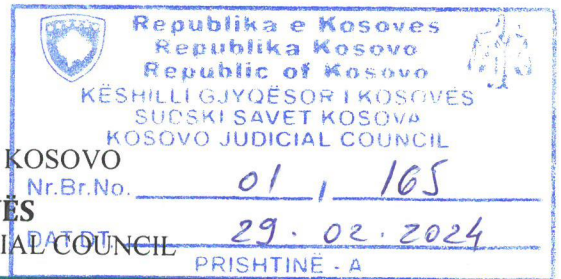 Republika e Kosovës
Republika Kosovo
Republic of Kosovo
KËSHILLI GJYQËSOR I KOSOVËS
SUDSKI SAVET KOSOVA
KOSOVO JUDICIAL COUNCIL
KOSOVO
Nr.Br.No. 01, 165
ËS
DAT.DT. 29. 02. 2024
IAL COUNCIL
PRISHTINË - A